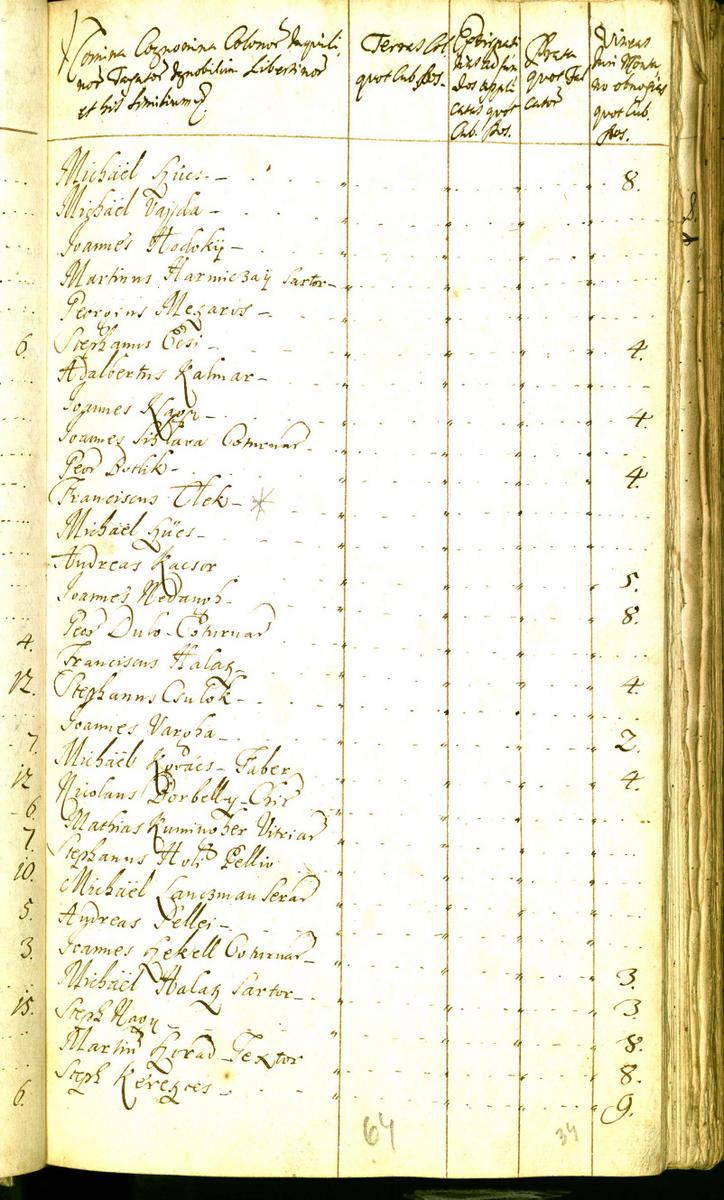 Nomina Cognomina Colonor Inquili,
nor Taxator Ignobilium Libertinor
et his Similium
Terras Col.
quot Cub. Pos.
Extirpati
Cub. Pos.
Prata
quot Fal
cator
Vineas
Juri Monta,
no obnoxias
quot Cub.
Pos.
Michaël Hües - 8.
Michaël Vajda -
Joannes Hodoky -
Martinus Harmiczaÿ Sartor -
Georgius Megaris -
6. Stephanus Cesi - 4.
Adalbertus Kalmar -
Joannes Nagy - 4.
Joannes Coturnar
Geor Botlik - 4.
Franciscus Elek -
Michaël Hües -
Andreas Kacsor 5.
Joannes 8.
Geor Dulo - Coturnar
4. Franciscus Halasz -
12. Stephanus Csulok - 4.
Joannes Vargha -
7. Michaël Kovács - Faber 2.
12 Nicolaus Borbelly - Chir 4.
6. Mathias Vitriar
7. Stephanus Holi Pellio
10. Michaël Lanczman Serar
5. Andreas Pellei -
3. Joannes Hekell Coturnar -
Michaël Halasz Sartor - 3.
15. Steph Nagy - 3.
Martin Textor 8.
Steph Kerekes - 8.
6. 9.
64
34